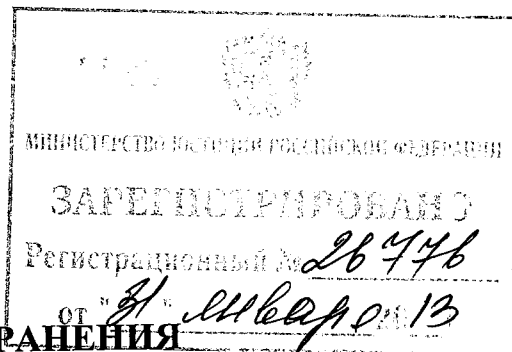 МИНИСТЕРСТВО ЮСТИЦИИ РОССИЙСКОЙ ФЕДЕРАЦИИ
ЗАРЕГИСТРИРОВАНО
Регистрационный № 26776
от "31" января 13
РАНЕНИЯ